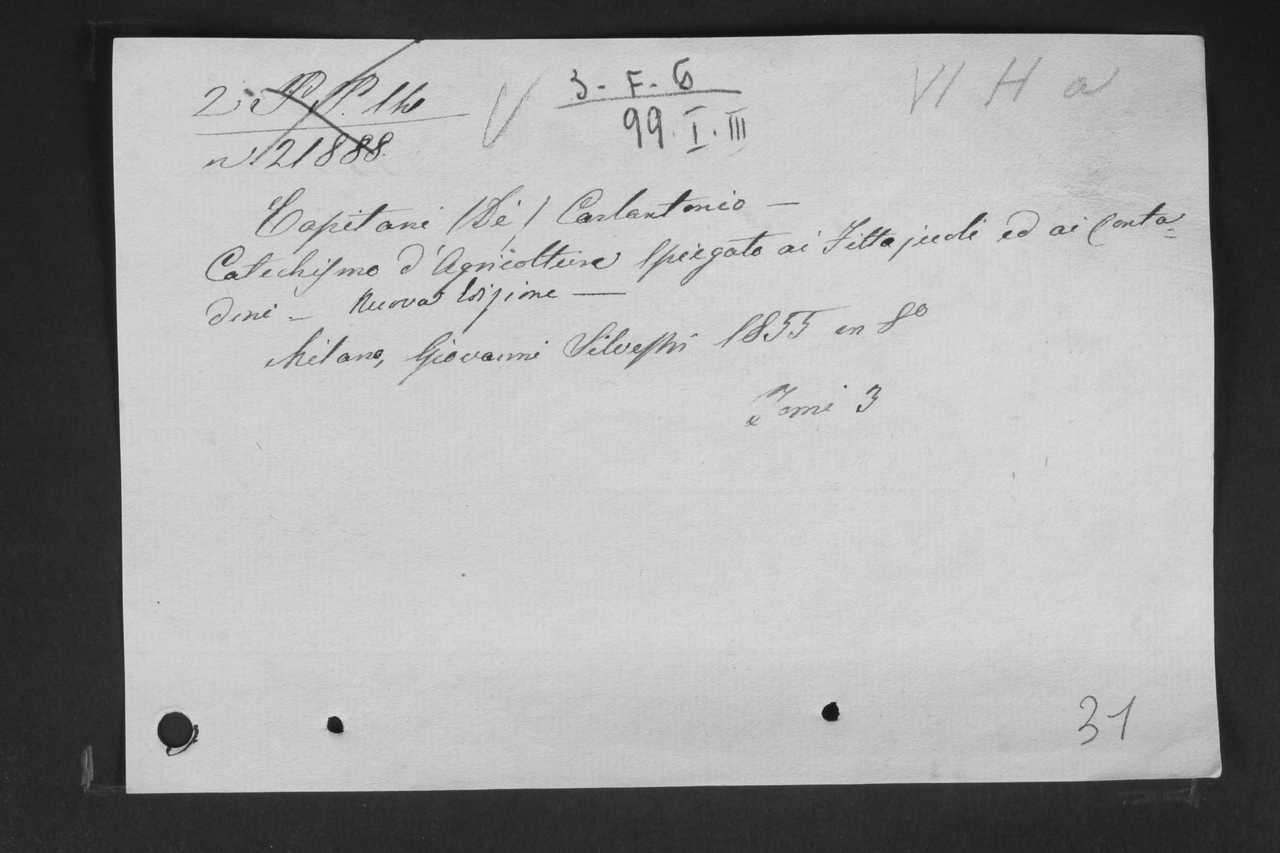 2ª P. P. 116
n. 21888.
V
3-F-6
99. I. III
VI H a
Capitani (De') Carlantonio —
Catechismo d'Agricoltura spiegato ai Fittajuoli ed ai Conta=
dini — Nuova Edizione —
Milano, Giovanni Silvestri 1855 in 8º
Tomi 3
31